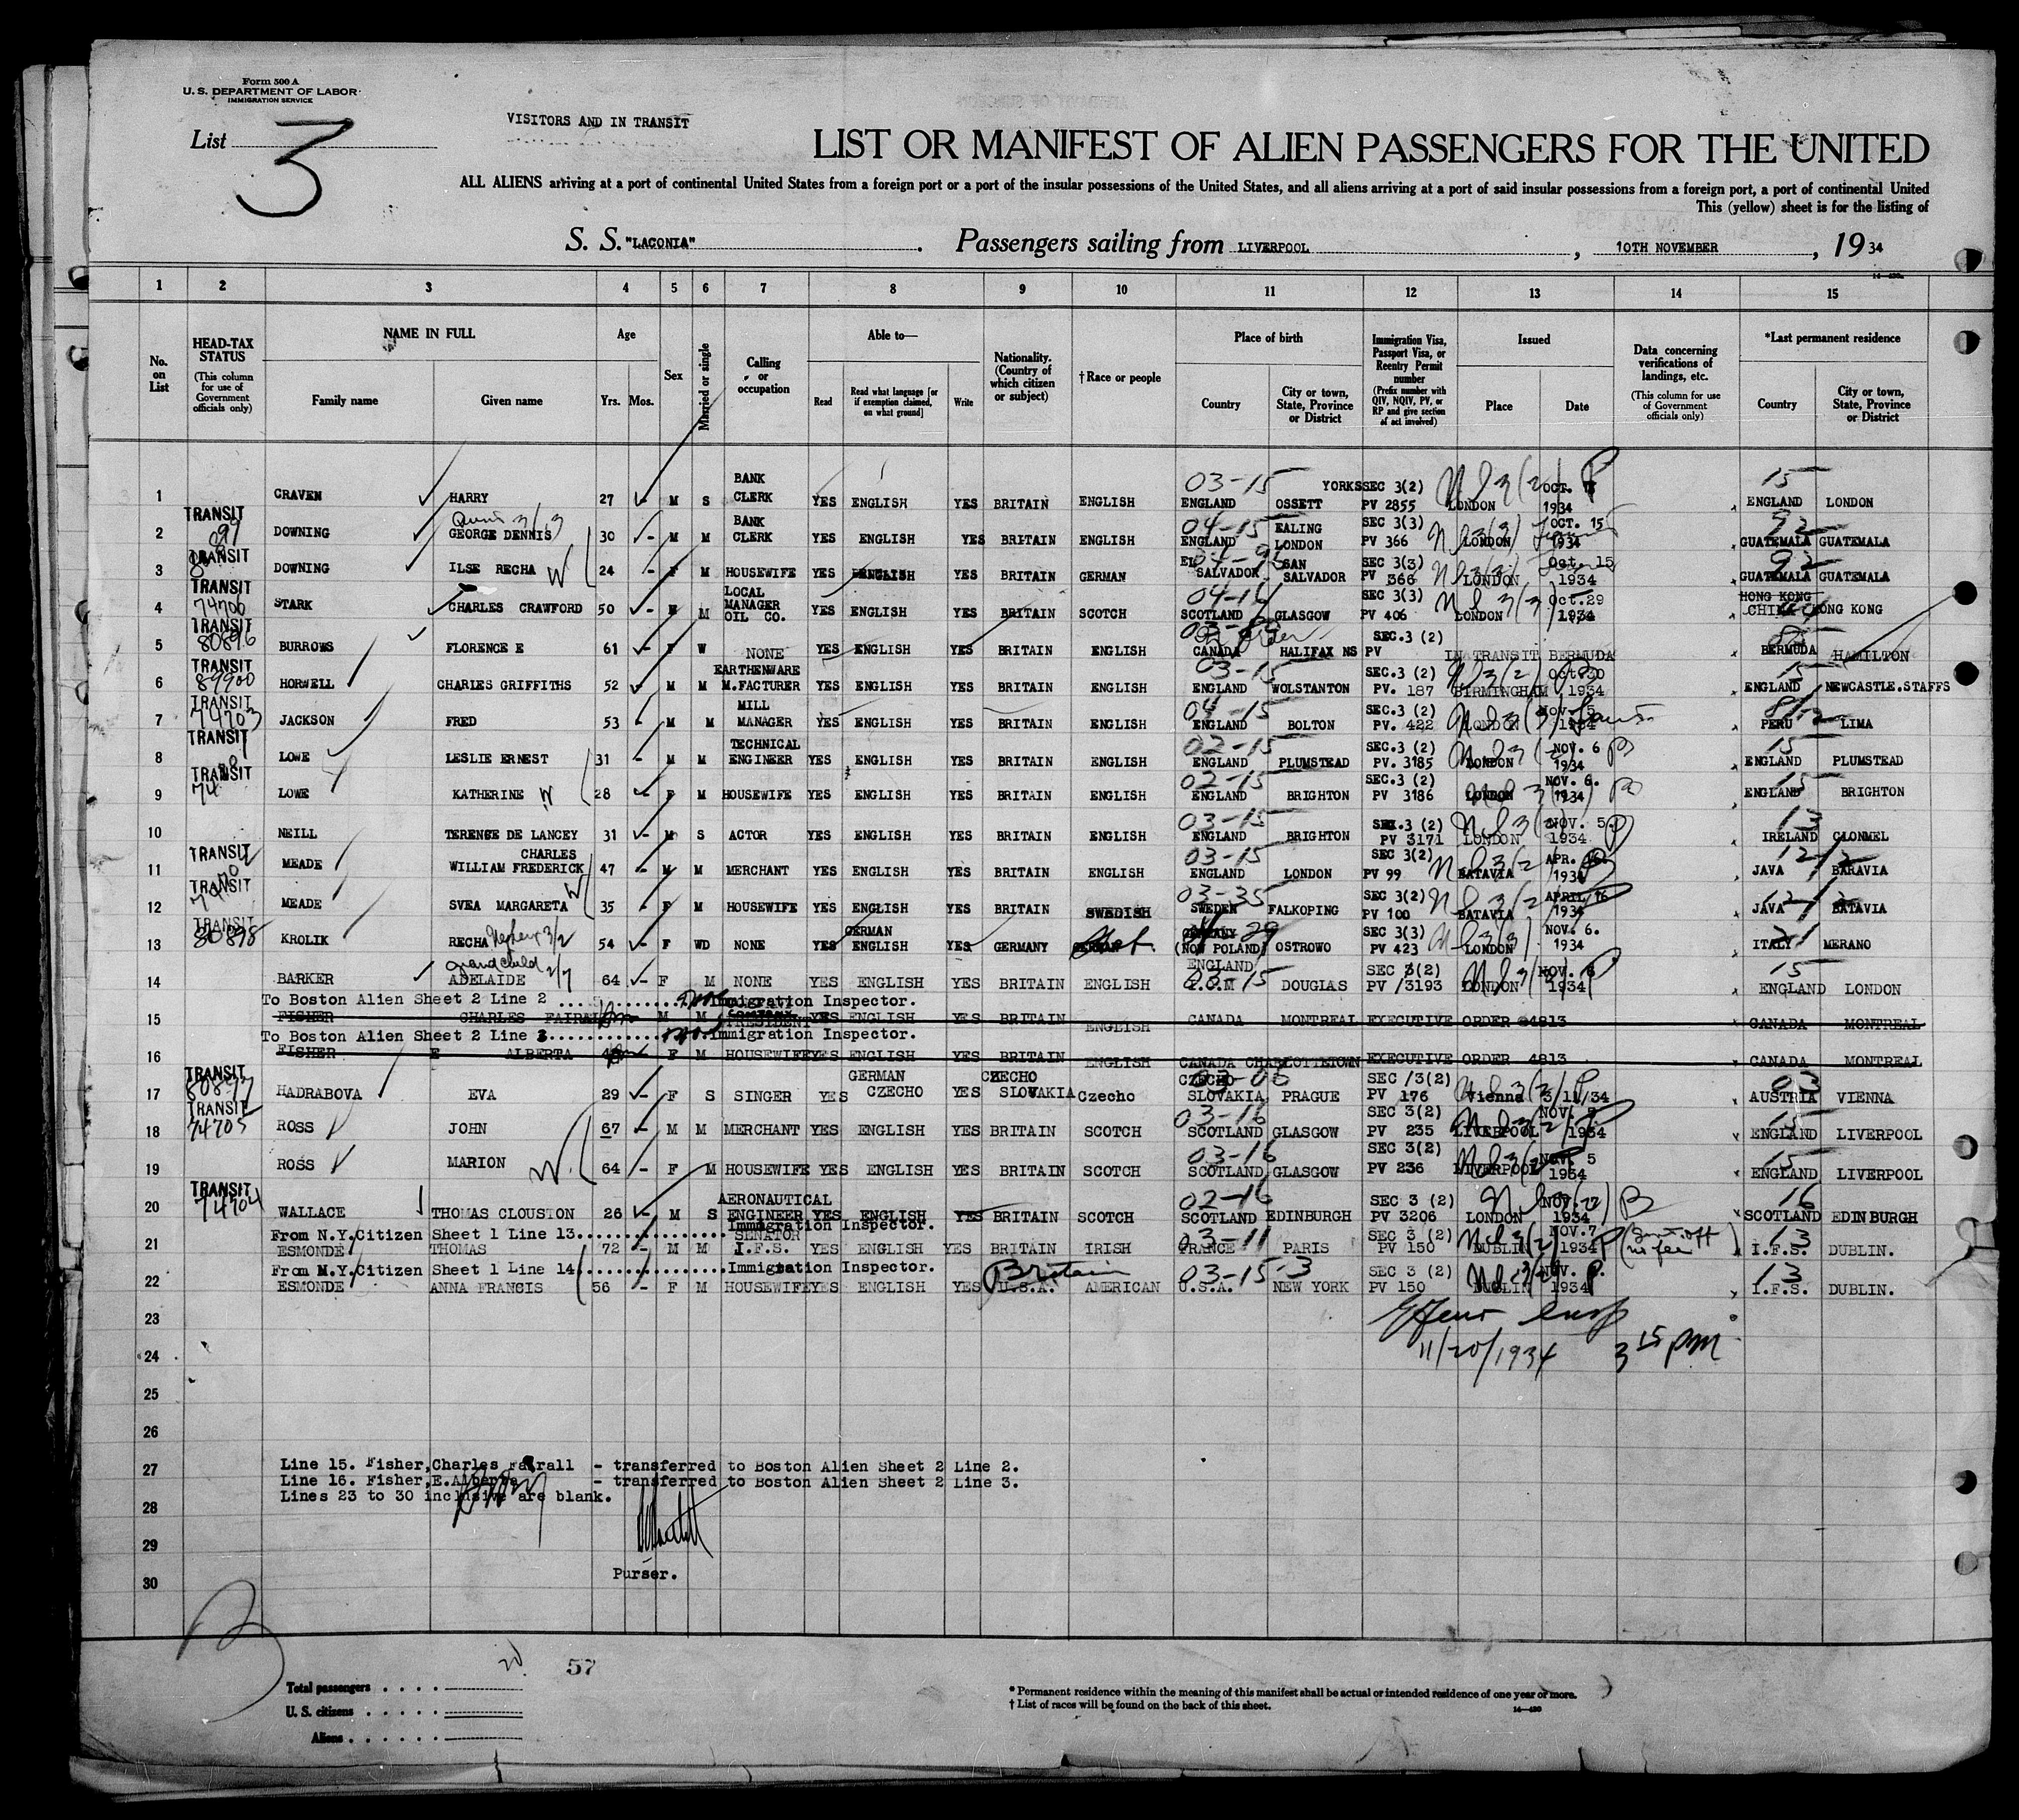 Form 500 A
U. S. DEPARTMENT OF LABOR
IMMIGRATION SERVICE
VISITORS AND IN TRANSIT
List 3
LIST OR MANIFEST OF ALIEN PASSENGERS FOR THE UNITED
ALL ALIENS arriving at a port of continental United States from a foreign port or a port of the insular possessions of the United States, and all aliens arriving at a port of said insular possessions from a foreign port, a port of continental United
This (yellow) sheet is for the listing of
S. S. "LACONIA" . Passengers sailing from LIVERPOOL , 10TH NOVEMBER , 1934
1 2 3 4 5 6 7 8 9 10 11 12 13 14 15
No. on List
HEAD-TAX STATUS (This column for use of Government officials only)
NAME IN FULL Family name Given name
Age Yrs. Mos.
Sex
Married or single
Calling or occupation
Able to— Read Read what language [or if exemption claimed, on what ground] Write
Nationality. (Country of which citizen or subject)
†Race or people
Place of birth Country City or town, State, Province or District
Immigration Visa, Passport Visa, or Reentry Permit number (Prefix number with QIV, NQIV, PV, or RP and give section of act involved)
Issued Place Date
Data concerning verifications of landings, etc. (This column for use of Government officials only)
*Last permanent residence Country City or town, State, Province or District
1 CRAVEN HARRY 27 - M S BANK CLERK YES ENGLISH YES BRITAIN ENGLISH 03-15 ENGLAND YORKS OSSETT SEC 3(2) PV 2855 LONDON OCT. 1934 15 ENGLAND LONDON
2 TRANSIT DOWNING GEORGE DENNIS 30 - M M BANK CLERK YES ENGLISH YES BRITAIN ENGLISH 04-15 ENGLAND EALING LONDON SEC 3(3) PV 366 LONDON OCT. 15 1934 92 GUATEMALA GUATEMALA
3 TRANSIT DOWNING ILSE RECHA W 24 - F M HOUSEWIFE YES ENGLISH YES BRITAIN GERMAN EL SALVADOR SAN SALVADOR SEC 3(3) PV 366 LONDON Oct. 15 1934 92 GUATEMALA GUATEMALA
4 TRANSIT 74706 STARK CHARLES CRAWFORD 50 - M LOCAL MANAGER OIL CO. YES ENGLISH YES BRITAIN SCOTCH 04-16 SCOTLAND GLASGOW SEC 3(3) PV 406 LONDON Oct.29 1934 HONG KONG CHINA HONG KONG
5 TRANSIT 80896 BURROWS FLORENCE E 61 - F W NONE YES ENGLISH YES BRITAIN ENGLISH CANADA HALIFAX NS SEC.3 (2) PV IN TRANSIT BERMUDA BERMUDA HAMILTON
6 TRANSIT 89900 HORWELL CHARLES GRIFFITHS 52 M M EARTHENWARE M.FACTURER YES ENGLISH YES BRITAIN ENGLISH 03-15 ENGLAND WOLSTANTON SEC.3 (2) PV. 187 BIRMINGHAM Oct 30 1934 15 ENGLAND NEWCASTLE.STAFFS
7 TRANSIT 74703 JACKSON FRED 53 - M M MILL MANAGER YES ENGLISH YES BRITAIN ENGLISH 04-15 ENGLAND BOLTON SEC.3 (2) PV. 422 LONDON Nov. 5 1934 PERU LIMA
8 TRANSIT LOWE LESLIE ERNEST 31 - M M TECHNICAL ENGINEER YES ENGLISH YES BRITAIN ENGLISH 02-15 ENGLAND PLUMSTEAD SEC.3 (2) PV. 3185 LONDON NOV. 6 1934 15 ENGLAND PLUMSTEAD
9 TRANSIT LOWE KATHERINE W 28 - F M HOUSEWIFE YES ENGLISH YES BRITAIN ENGLISH 02-15 ENGLAND BRIGHTON SEC.3 (2) PV 3186 LONDON NOV. 6. 1934 15 ENGLAND BRIGHTON
10 NEILL TERENCE DE LANCEY 31 - M S ACTOR YES ENGLISH YES BRITAIN ENGLISH 03-15 ENGLAND BRIGHTON SEC.3 (2) PV 3171 LONDON NOV. 5 1934 13 IRELAND CLONMEL
11 TRANSIT MEADE CHARLES WILLIAM FREDERICK 47 - M M MERCHANT YES ENGLISH YES BRITAIN ENGLISH 03-15 ENGLAND LONDON SEC 3(2) PV 99 BATAVIA APR. 1934 JAVA BARAVIA
12 TRANSIT MEADE SVEA MARGARETA W 35 - F M HOUSEWIFE YES ENGLISH YES BRITAIN SWEDISH 03-35 SWEDEN FALKOPING SEC 3(2) PV 100 BATAVIA APRIL 16 1934 JAVA BATAVIA
13 TRANSIT 80898 KROLIK RECHA 54 - F WD NONE YES GERMAN ENGLISH YES GERMANY (NOW POLAND) OSTROWO SEC 3(3) PV 423 LONDON NOV. 6. 1934 21 ITALY MERANO
14 BARKER grandchild ADELAIDE 64 - F M NONE YES ENGLISH YES BRITAIN ENGLISH ENGLAND 03-15 I.O.M DOUGLAS SEC 3(2) PV /3193 LONDON NOV. 1934 15 ENGLAND LONDON
To Boston Alien Sheet 2 Line 2 .............. Immigration Inspector.
15 FISHER CHARLES FAIRALL M M COMPANY PRESIDENT YES ENGLISH YES BRITAIN ENGLISH CANADA MONTREAL EXECUTIVE ORDER 4813 CANADA MONTREAL
To Boston Alien Sheet 2 Line 3.............. Immigration Inspector.
16 FISHER E ALBERTA F M HOUSEWIFE YES ENGLISH YES BRITAIN ENGLISH CANADA CHARLOTTETOWN EXECUTIVE ORDER 4813 CANADA MONTREAL
17 TRANSIT 80897 HADRABOVA EVA 29 - F S SINGER YES GERMAN CZECHO YES CZECHO SLOVAKIA Czecho CZECHO SLOVAKIA PRAGUE SEC /3(2) PV 176 Vienna 3/11/34 03 AUSTRIA VIENNA
18 TRANSIT 74705 ROSS JOHN 67 - M M MERCHANT YES ENGLISH YES BRITAIN SCOTCH 03-16 SCOTLAND GLASGOW SEC 3(2) PV 235 LIVERPOOL NOV. 1934 15 ENGLAND LIVERPOOL
19 ROSS MARION W. 64 - F M HOUSEWIFE YES ENGLISH YES BRITAIN SCOTCH 03-16 SCOTLAND GLASGOW SEC 3(2) PV 236 LIVERPOOL NOV. 5 1934 15 ENGLAND LIVERPOOL
20 TRANSIT 74704 WALLACE THOMAS CLOUSTON 26 - M S AERONAUTICAL ENGINEER YES ENGLISH YES BRITAIN SCOTCH 02-16 SCOTLAND EDINBURGH SEC 3 (2) PV 3206 LONDON NOV. 1934 16 SCOTLAND EDINBURGH
From N.Y.Citizen Sheet 1 Line 13................. Immigration Inspector.
21 ESMONDE THOMAS 72 - M M SENATOR I.F.S. YES ENGLISH YES BRITAIN IRISH 03-11 FRANCE PARIS SEC 3 (2) PV 150 DUBLIN NOV.7 1934 13 I.F.S. DUBLIN.
From N.Y.Citizen Sheet 1 Line 14................. Immigration Inspector.
22 ESMONDE ANNA FRANCIS 56 - F M HOUSEWIFE YES ENGLISH YES Britain U.S.A. AMERICAN 03-15-3 U.S.A. NEW YORK SEC 3 (2) PV 150 DUBLIN NOV. 1934 13 I.F.S. DUBLIN.
23
24 11/20/1934 3 15 pm
25
26
27 Line 15. Fisher,Charles Fairall - transferred to Boston Alien Sheet 2 Line 2.
Line 16. Fisher,E.Alberta - transferred to Boston Alien Sheet 2 Line 3.
Lines 23 to 30 inclusive are blank.
28
29
Purser.
30
57
Total passengers . . . .
U. S. citizens . . . . .
Aliens . . . . . .
* Permanent residence within the meaning of this manifest shall be actual or intended residence of one year or more.
† List of races will be found on the back of this sheet.
14—430